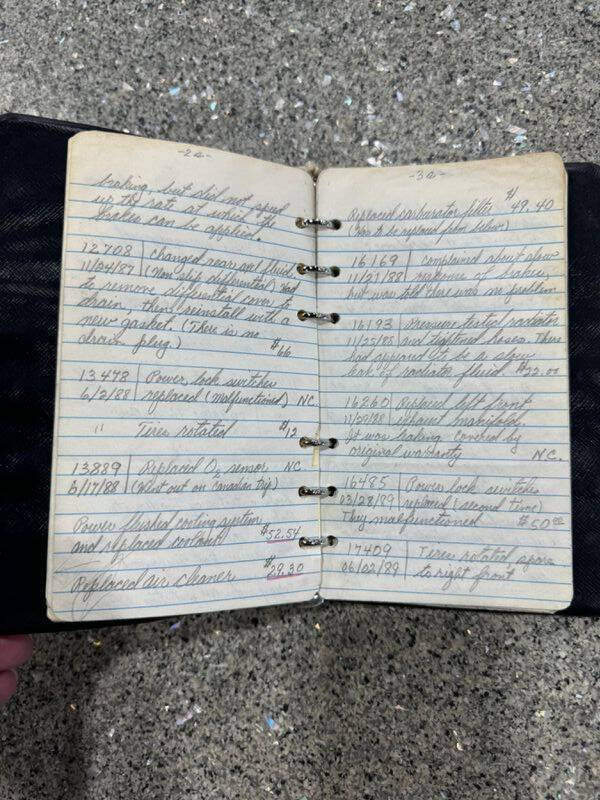 -2a-
braking, but did not speed
up the rate at which the
brakes can be applied.
12708 | changed rear axel fluid
11/24/87 | (Non slip differential) Had
to remove differential cover to
drain, then reinstall with a
new gasket. (There is no
drain plug.) $66
13478 | Power lock switches
6/2/88 | replaced (malfunctioned) NC.
" Tires rotated $12
13889 | Replaced O2 sensor NC
6/17/88 | (Went out on Canadian trip)
Power flushed cooling system
and replaced coolant $52.54
Replaced air cleaner $29.30
-3a-
Replaced carburator filter $49.40
(Has to be replaced)
16169 | complained about
11/21/88 | of brakes,
but was told there was no problem
16193 | Pressure tested radiator
11/25/88 | and tightened hoses. There
had appeared to be a slow
leak of radiator fluid $22.00
16260 | Replaced left front
11/29/88 | exhaust manifold.
It was leaking covered by
original warranty N.C.
16485 | Power lock switches
03/28/89 | replaced (second time)
They malfunctioned $50.00
17409 | Tires rotated spare
06/02/89 | to right front